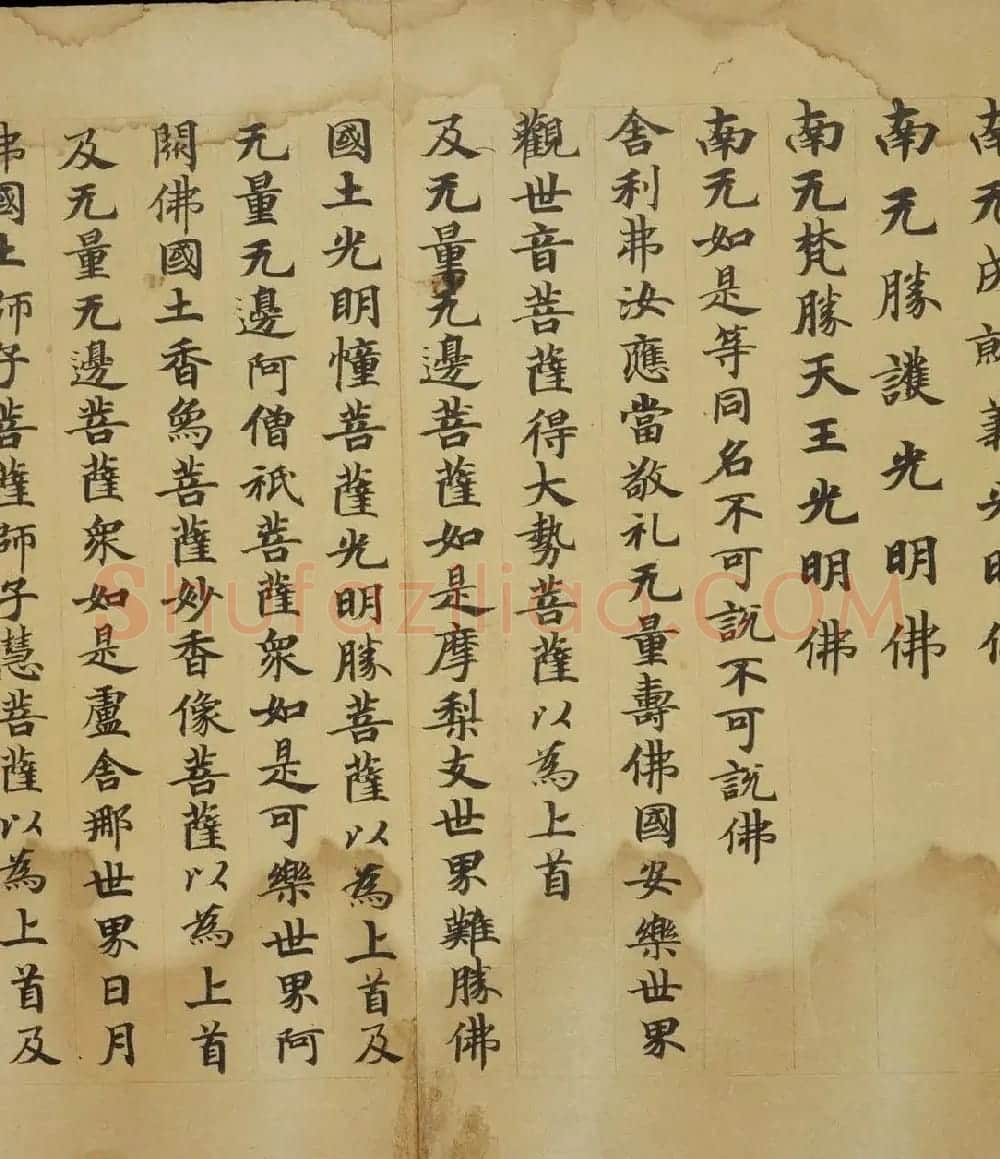 南无成義光明佛
南无勝護光明佛
南无梵勝天王光明佛
南无如是等同名不可説不可説佛
舍利弗汝應當敬礼无量壽佛國安樂世界
觀世音菩薩得大勢菩薩以為上首
及无量无邊菩薩如是摩梨支世界難勝佛
國土光明憧菩薩光明勝菩薩以為上首及
无量无邊阿僧祇菩薩衆如是可樂世界阿
閦佛國土香象菩薩妙香像菩薩以為上首
及无量无邊菩薩衆如是盧舍那世界日月
佛國土師子菩薩師子慧菩薩以為上首及
Shufaziliao.COM